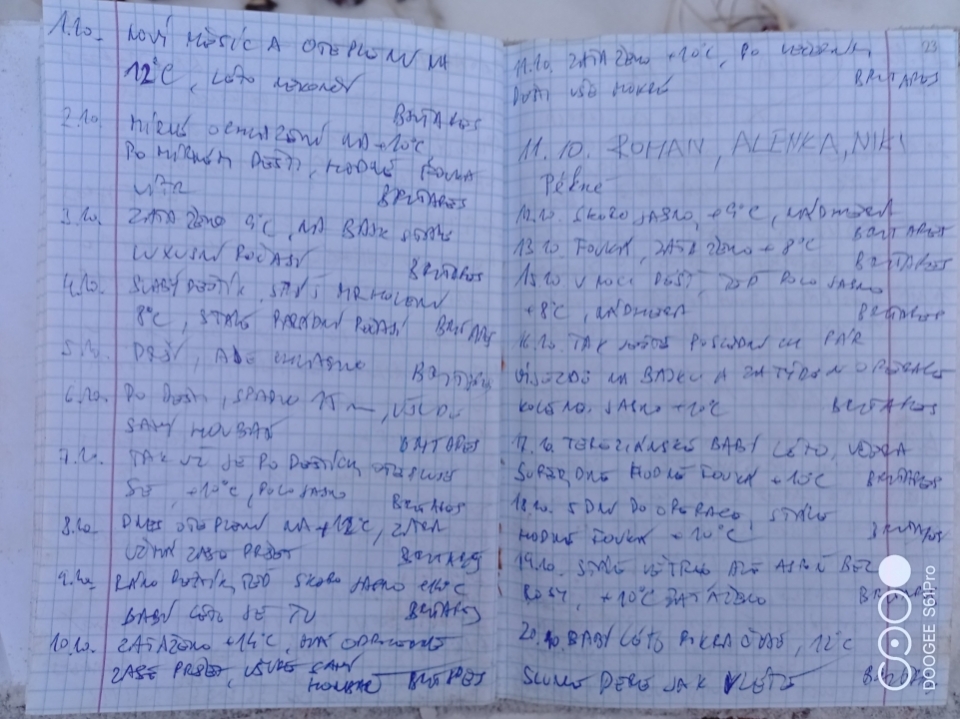 1.10. NOVÝ MĚSÍC A OTEPLENÍ NA
12°C, LÉTO NEKONČÍ
BRITAROS
2.10. MÍRNÉ OCHLAZENÍ NA +10°C,
PO MÍRNÉM DEŠTI, HODNĚ FOUKÁ
VÍTR BRITAROS
3.10. ZATAŽENO 9°C, NA BAJK STÁLE
LUXUSNÍ POČASÍ BRITAROS
4.10. SLABÝ DEŠTÍK, MRHOLENÍ
8°C, STÁLE PARÁDNÍ POČASÍ BRITAROS
5.10. DEŠŤ, ALE BRITAROS
6.10. PO DEŠTI, SPADLO 15 mm, VŠUDE
SAMÝ HOUBAŘ
BRITAROS
7.10. TAK UŽ SE PO DEŠTÍKU OTEPLUJE
+10°C, POLOJASNO BRITAROS
8.10. DNES OTEPLENÍ NA +12°C,
ZASE PRŠET BRITAROS
9.10. RÁNO DEŠTÍK, TEĎ SKORO JASNO +10°C
BABÍ LÉTO JE TU BRITAROS
10.10. ZATAŽENO +14°C, ODPOLEDNE
ZASE PRŠET, VŠUDE SAMÝ
HOUBAŘ BRITAROS
23
11.10. ZATAŽENO +10°C, PO VČEREJŠÍM
DEŠTI VŠE MOKRÉ BRITAROS
11.10. ROMAN, ALENKA, NIKI
Pěkné
12.10. SKORO JASNO, +9°C, NÁDHERA
BRITAROS
13.10. FOUKÁ, ZATAŽENO +8°C
BRITAROS
15.10 V NOCI DÉŠŤ, TEĎ POLOJASNO
+8°C, NÁDHERA BRITAROS
16.10. TAK JEŠTĚ POSLEDNÍCH PÁR
VÝJEZDŮ NA BAJKU A ZA TÝDEN OPERACE
KOLENA. JASNO +10°C BRITAROS
17.10. BABÍ LÉTO, VČERA
HODNĚ FOUKÁ +10°C BRITAROS
18.10. 5 DNÍ DO OPERACE, STÁLE
HODNĚ FOUKÁ +10°C BRITAROS
19.10. STÁLE VĚTRNO ALE ASPOŇ BEZ
ROSY, +10°C ZATAŽENO
20.10 BABÍ LÉTO POKRAČUJE, 12°C
SLUNCE PEČE JAK V LÉTĚ
DOOGEE S61Pro